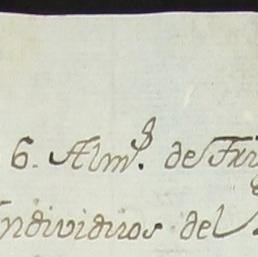 6. Alm.s de Fri
Individuos del